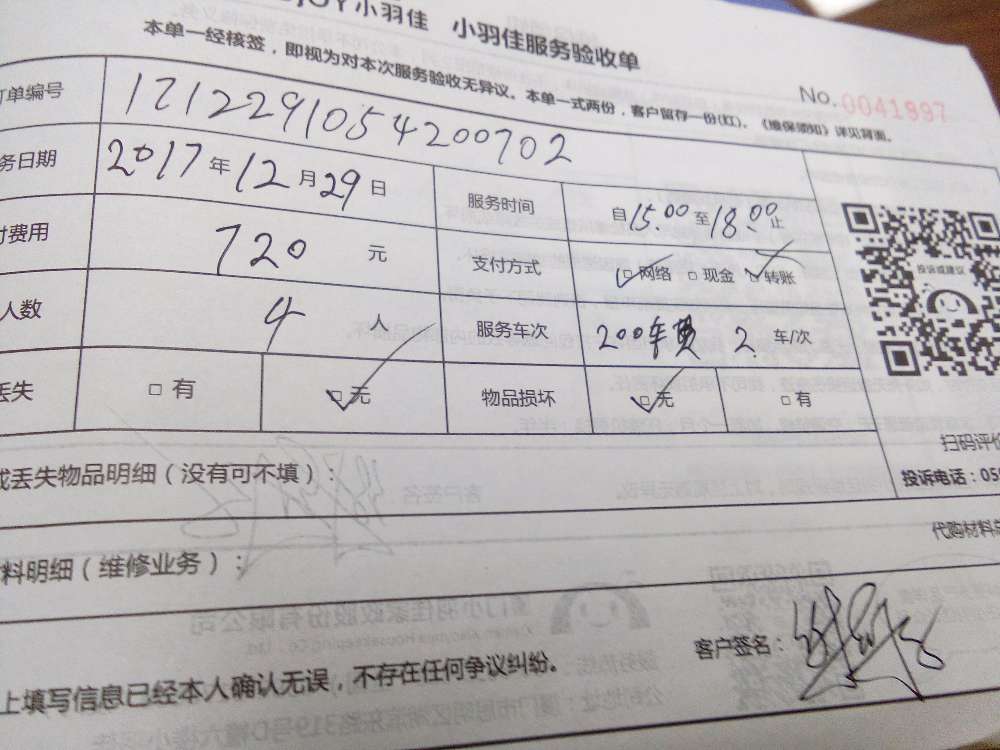 JOY小羽佳 小羽佳服务验收单
本单一经核签，即视为对本次服务验收无异议。本单一式两份，客户留存一份(红)。《维保须知》详见背面。
No.0041997
订单编号 1712291054200702
务日期 2017年12月29日 服务时间 自15:00至18:00止
付费用 720 元 支付方式 □网络 □现金 □转账
人数 4 人 服务车次 200车费 2 车/次
丢失 □有 □无 物品损坏 □无 □有
投诉或建议
扫码评价
投诉电话：059
或丢失物品明细（没有可不填）：
代购材料总
料明细（维修业务）：
客户签名：
上填写信息已经本人确认无误，不存在任何争议纠纷。